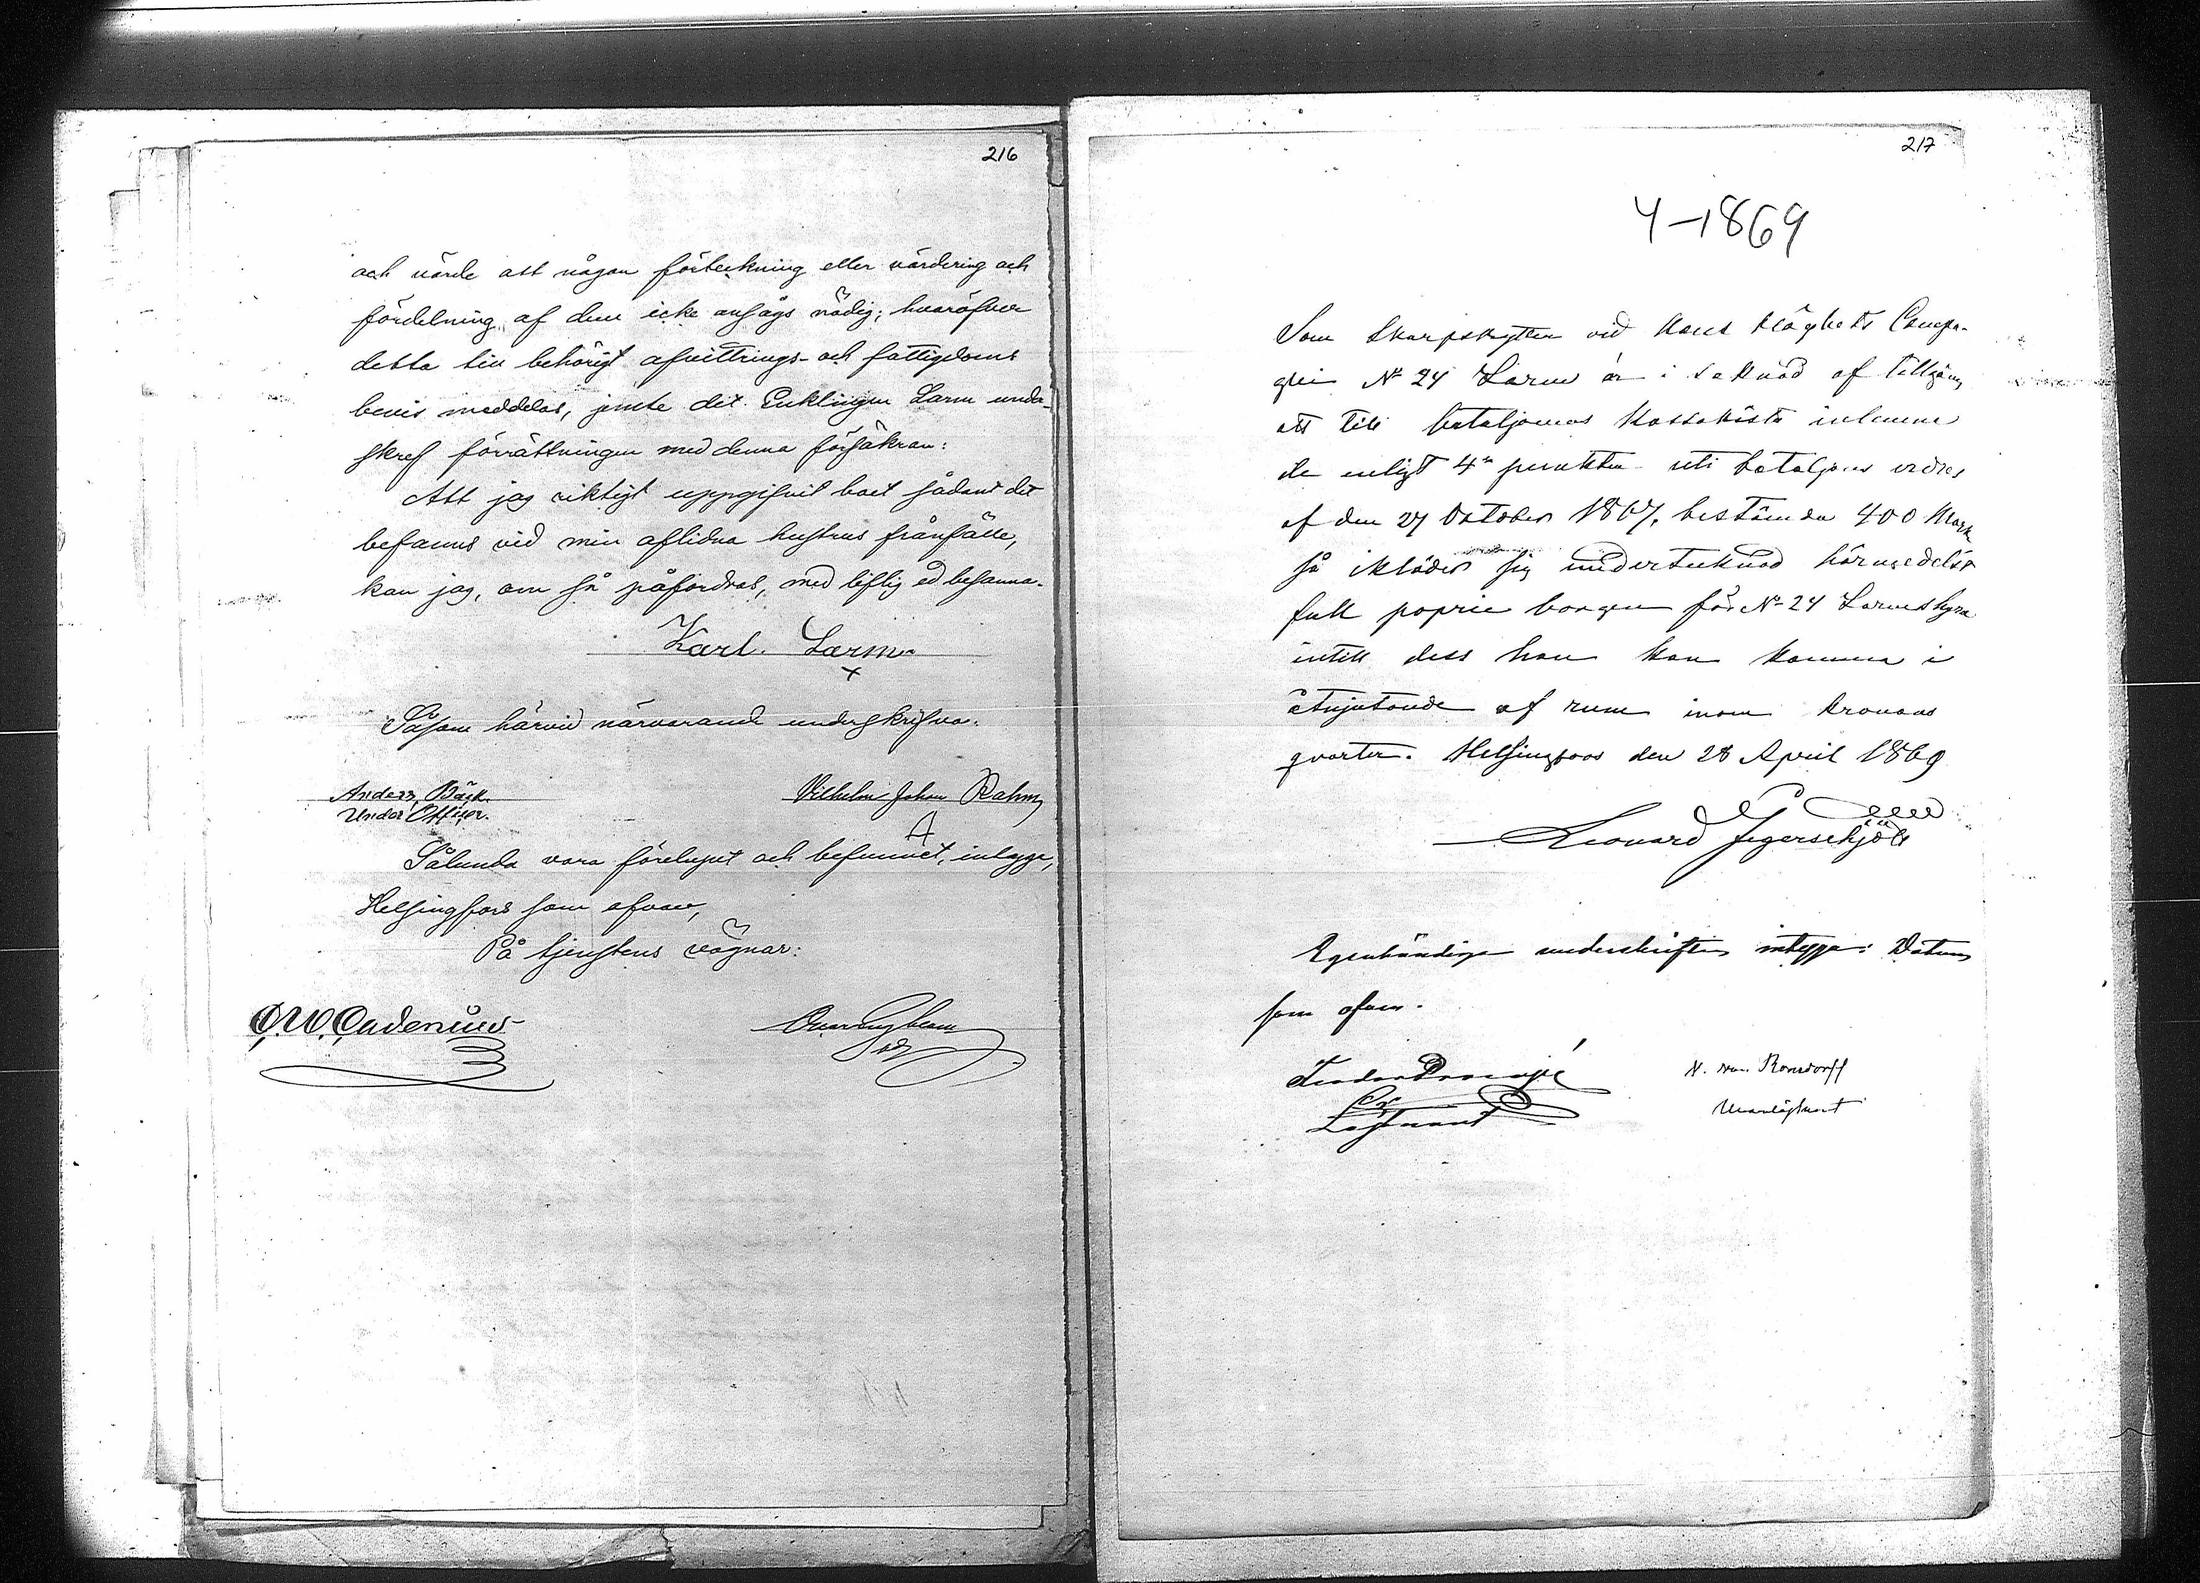 216
och värde att någon förteckning eller värdering och
fördelning af dem icke ansågs nödig; hvaröfver
detta till behörigt afvittrings- och fattigdoms
bevis meddelas, jemte det Enklingen Larm under-
skref förrättningen med denna försäkran:
Att jag riktigt uppgifvit boet sådant det
befanns vid min aflidna hustrus frånfälle,
kan jag, om så påfordras, med liflig ed besanna.
Karl Larm
x
Såsom härvid närvarande underskrifva:
Anders Bäck Vilhelm Johan Rahm
Under Officer.
Sålunda vara förelupet och befunnet, intyga,
Helsingfors som ofvan,
På tjenstens vägnar:
217
4-1869
Som Skarpskytten vid Hans Höghets Compa-
gni No 24 Larm är i saknad af tillgång
att till bataljonens Kassakista inlemna
de enligt 4de punkten uti bataljons ordres
af den 27 Oktober 1867, bestämda 400 Mark
så ikläder sig undertecknad härmedelst
full proprie borgen för No 24 Larms hyra
intill dess han kan komma i
åtnjutande af rum inom kronans
qvarter. Helsingfors den 28 April 1869
Leonard Jägerskjöld
Egenhändiga underskriften intyga: Datum
som ofvan.